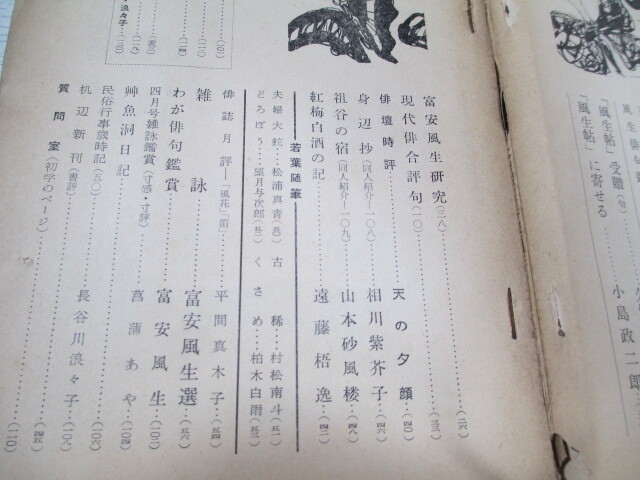 風生俳
「風生帖」受贈(句)
「風生帖」に寄せる
小島政二郎
富安風生研究(三八)
(二六)
現代俳句合評(一〇)
(三三)
俳壇時評
天の夕顔
(四〇)
身辺抄(同人紹介―一〇八)
相川紫芥子
(四六)
祖谷の宿(同人紹介―一〇九)
山本砂風楼
(四八)
紅梅白酒の記
遠藤梧逸
(四二)
若葉随筆
夫婦大蛇
松浦真青
古稀
村松南斗(五一)
どろぼう
望月与次郎
くさめ
柏木白雨(五三)
俳誌月評―「風花」「笛」
平間真木子
(五四)
雑詠
富安風生選
(五六)
わが俳句鑑賞
富安風生
(一〇二)
四月号雑詠鑑賞(寸感・寸評)
艸魚洞日記
菖蒲あや
(一〇四)
民俗行事歳時記(五〇)
(一〇六)
机辺新刊(書評)
長谷川浪々子
(一〇八)
質問室(初学のページ)
(四五)
(一一〇)
浪々子